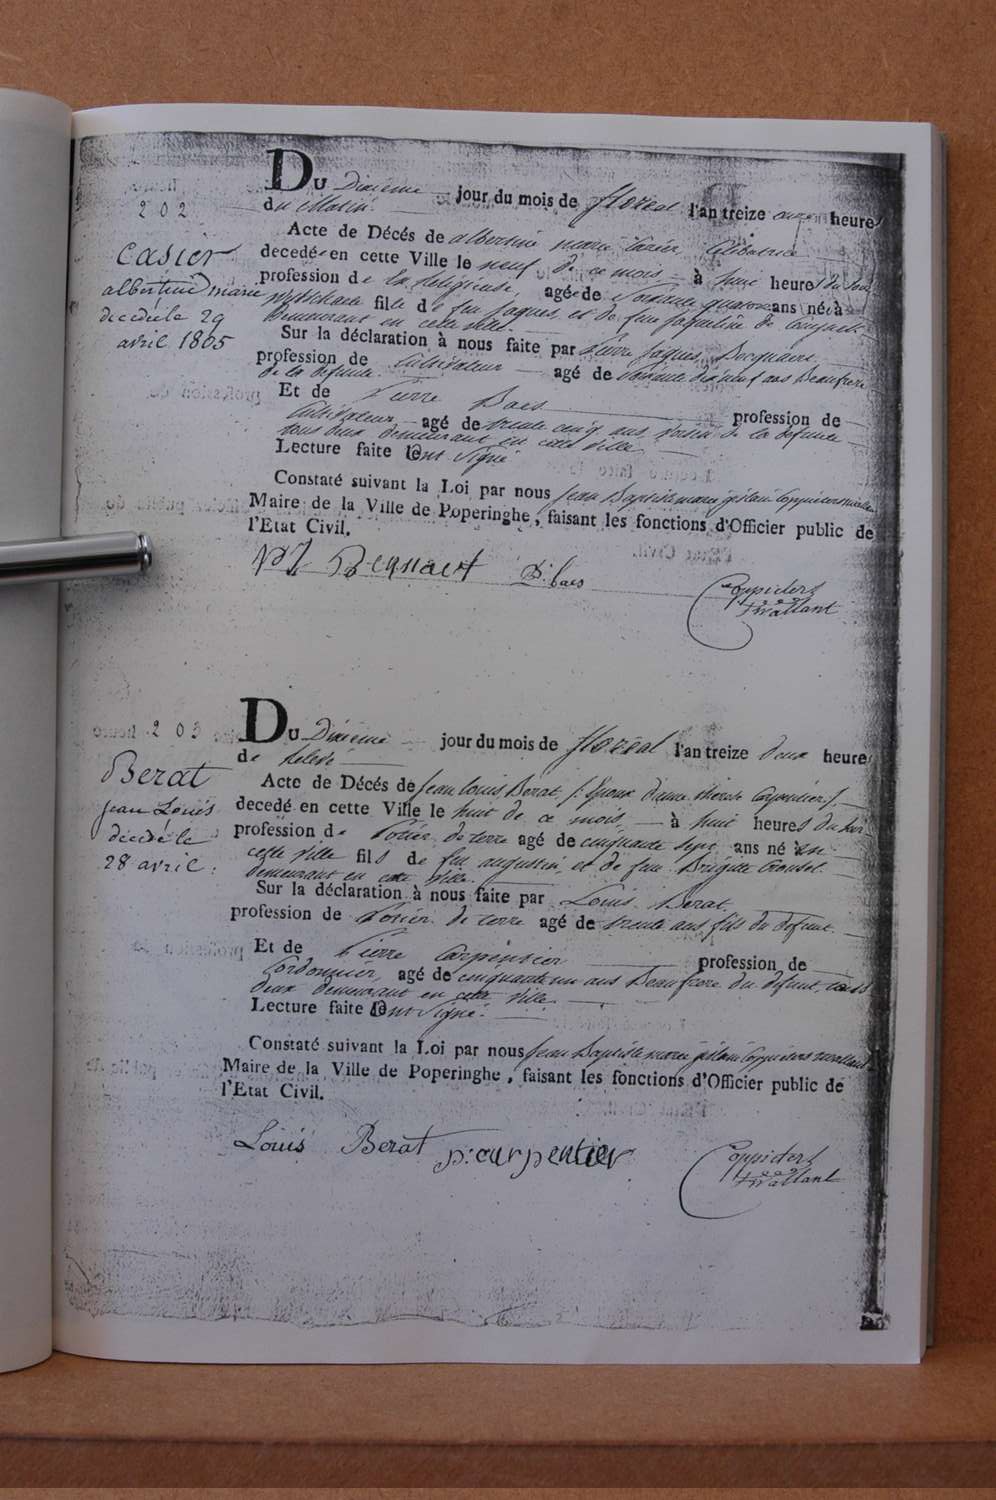 202
Casier
albertine marie
decedé le 29
avril 1805
Du Dixieme jour du mois de floreal l'an treize onze heures
du Matin.
Acte de Décés de albertine marie Casier, Celibatrice
decedé en cette Ville le neuf de ce mois à huit heures du soir
profession de la religieuse, agé de Soixante quatorze ans né à
fille de feu Jaques, et de feue Jaqueline de
demeurant en cette ville.
Sur la déclaration à nous faite par Pierre Jaques Becquaert
profession de Cultivateur agé de Soixante dix neuf ans Beaufrere
de la defunte.
Et de Pierre Baes profession de
Cultivateur agé de trente cinq ans voisin de la defunte
tous deux demeurant en cette ville
Lecture faite ont signé
Constaté suivant la Loi par nous Jean Baptiste marie gislain Coppieters
Maire de la Ville de Poperinghe, faisant les fonctions d'Officier public de
l'Etat Civil.
PJ Becquaert P: baes
Coppieters
t'wallant
203
Berat
Jean Louis
décédé le
28 avril.
Du Dixieme jour du mois de floréal l'an treize deux heure
de relevé
Acte de Décés de Jean Louis Berat /: Epoux d'anne therese Carpentier /.
decedé en cette Ville le huit de ce mois, à huit heures du soir
profession de Potier de terre agé de cinquante sept ans né en
cette ville fils de feu augustin, et de feue Brigitte
demeurant en cette ville.
Sur la déclaration à nous faite par Louis Berat
profession de Potier de terre agé de trente ans fils du defunt.
Et de Pierre Carpentier profession de
Cordonnier, agé de cinquante un ans Beaufrere du defunt tous
deux demeurant en cette ville
Lecture faite ont signé.
Constaté suivant la Loi par nous Jean Baptiste marie gislain Coppieters
Maire de la Ville de Poperinghe, faisant les fonctions d'Officier public de
l'Etat Civil.
Louis Berat p: carpentier
Coppieters
t'wallant